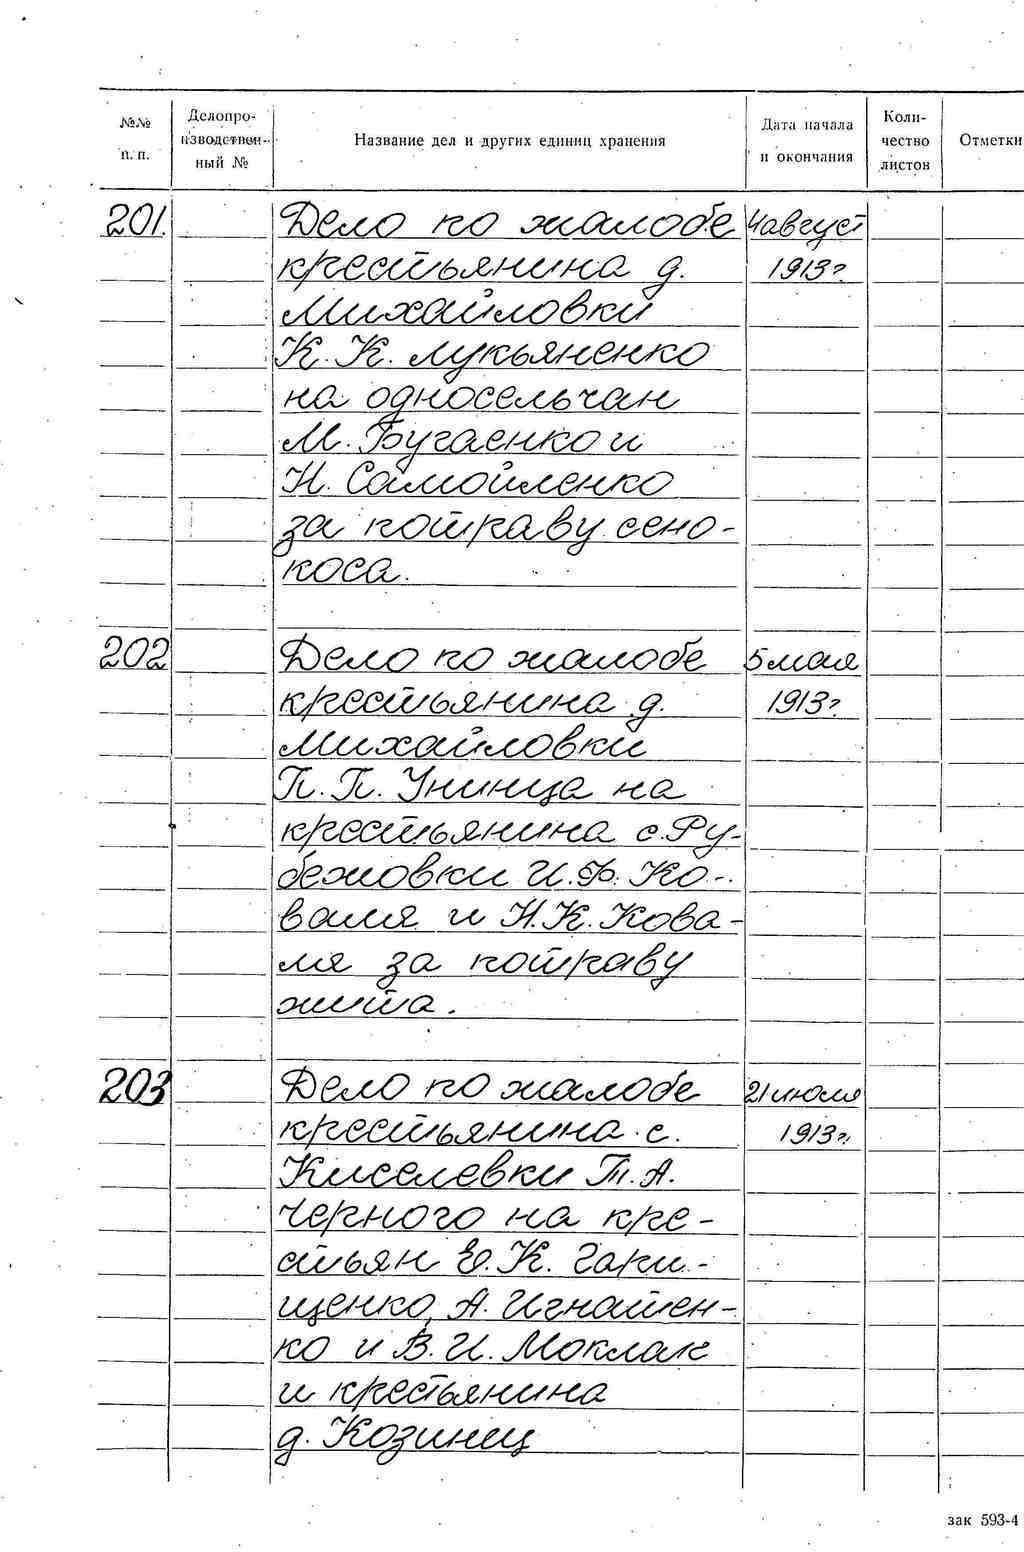 №№ п. п.
Делопро-
изводствен-
ный №
Название дел и других единиц хранения
Дата начала
и окончания
Коли-
чество
листов
Отметки
201. Дело по жалобе 4 август
крестьянина д. 1913 г
Михайловки
К. К. Лукьяненко
на односельчан
М. Бугаенко и
Н. Самойленко
за потраву сено-
коса.
202 Дело по жалобе 5 мая
крестьянина д. 1913 г
Михайловки
П. П. Униница на
крестьянина с. Ру-
бежовки И. Ф. Ко-
валя и Н. К. Кова-
ля за потраву
жита.
203 Дело по жалобе 21 июля
крестьянина с. 1913 г.
Киселевки Т. А.
Черного на кре-
стьян Е. К. Гари-
щенко, А. Игнатен-
ко и В. И. Моклак
и крестьянина
д. Козинец
зак 593-4